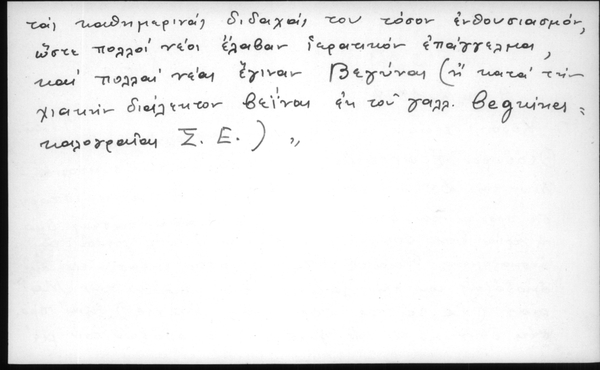 τὰς καθημερινάς διδαχάς του τόσον ἐνθουσιασμόν,
ὥστε πολλοί νέοι ἔλαβαν ἱερατικόν ἐπάγγελμα,
καί πολλαί νέαι ἔγιναν Βεγύναι (ἤ κατά τήν
χιακήν διάλεκτον βεΐναι ἐκ τοῦ γαλλ. beguines =
καλογραῖαι Σ. Ε.) „